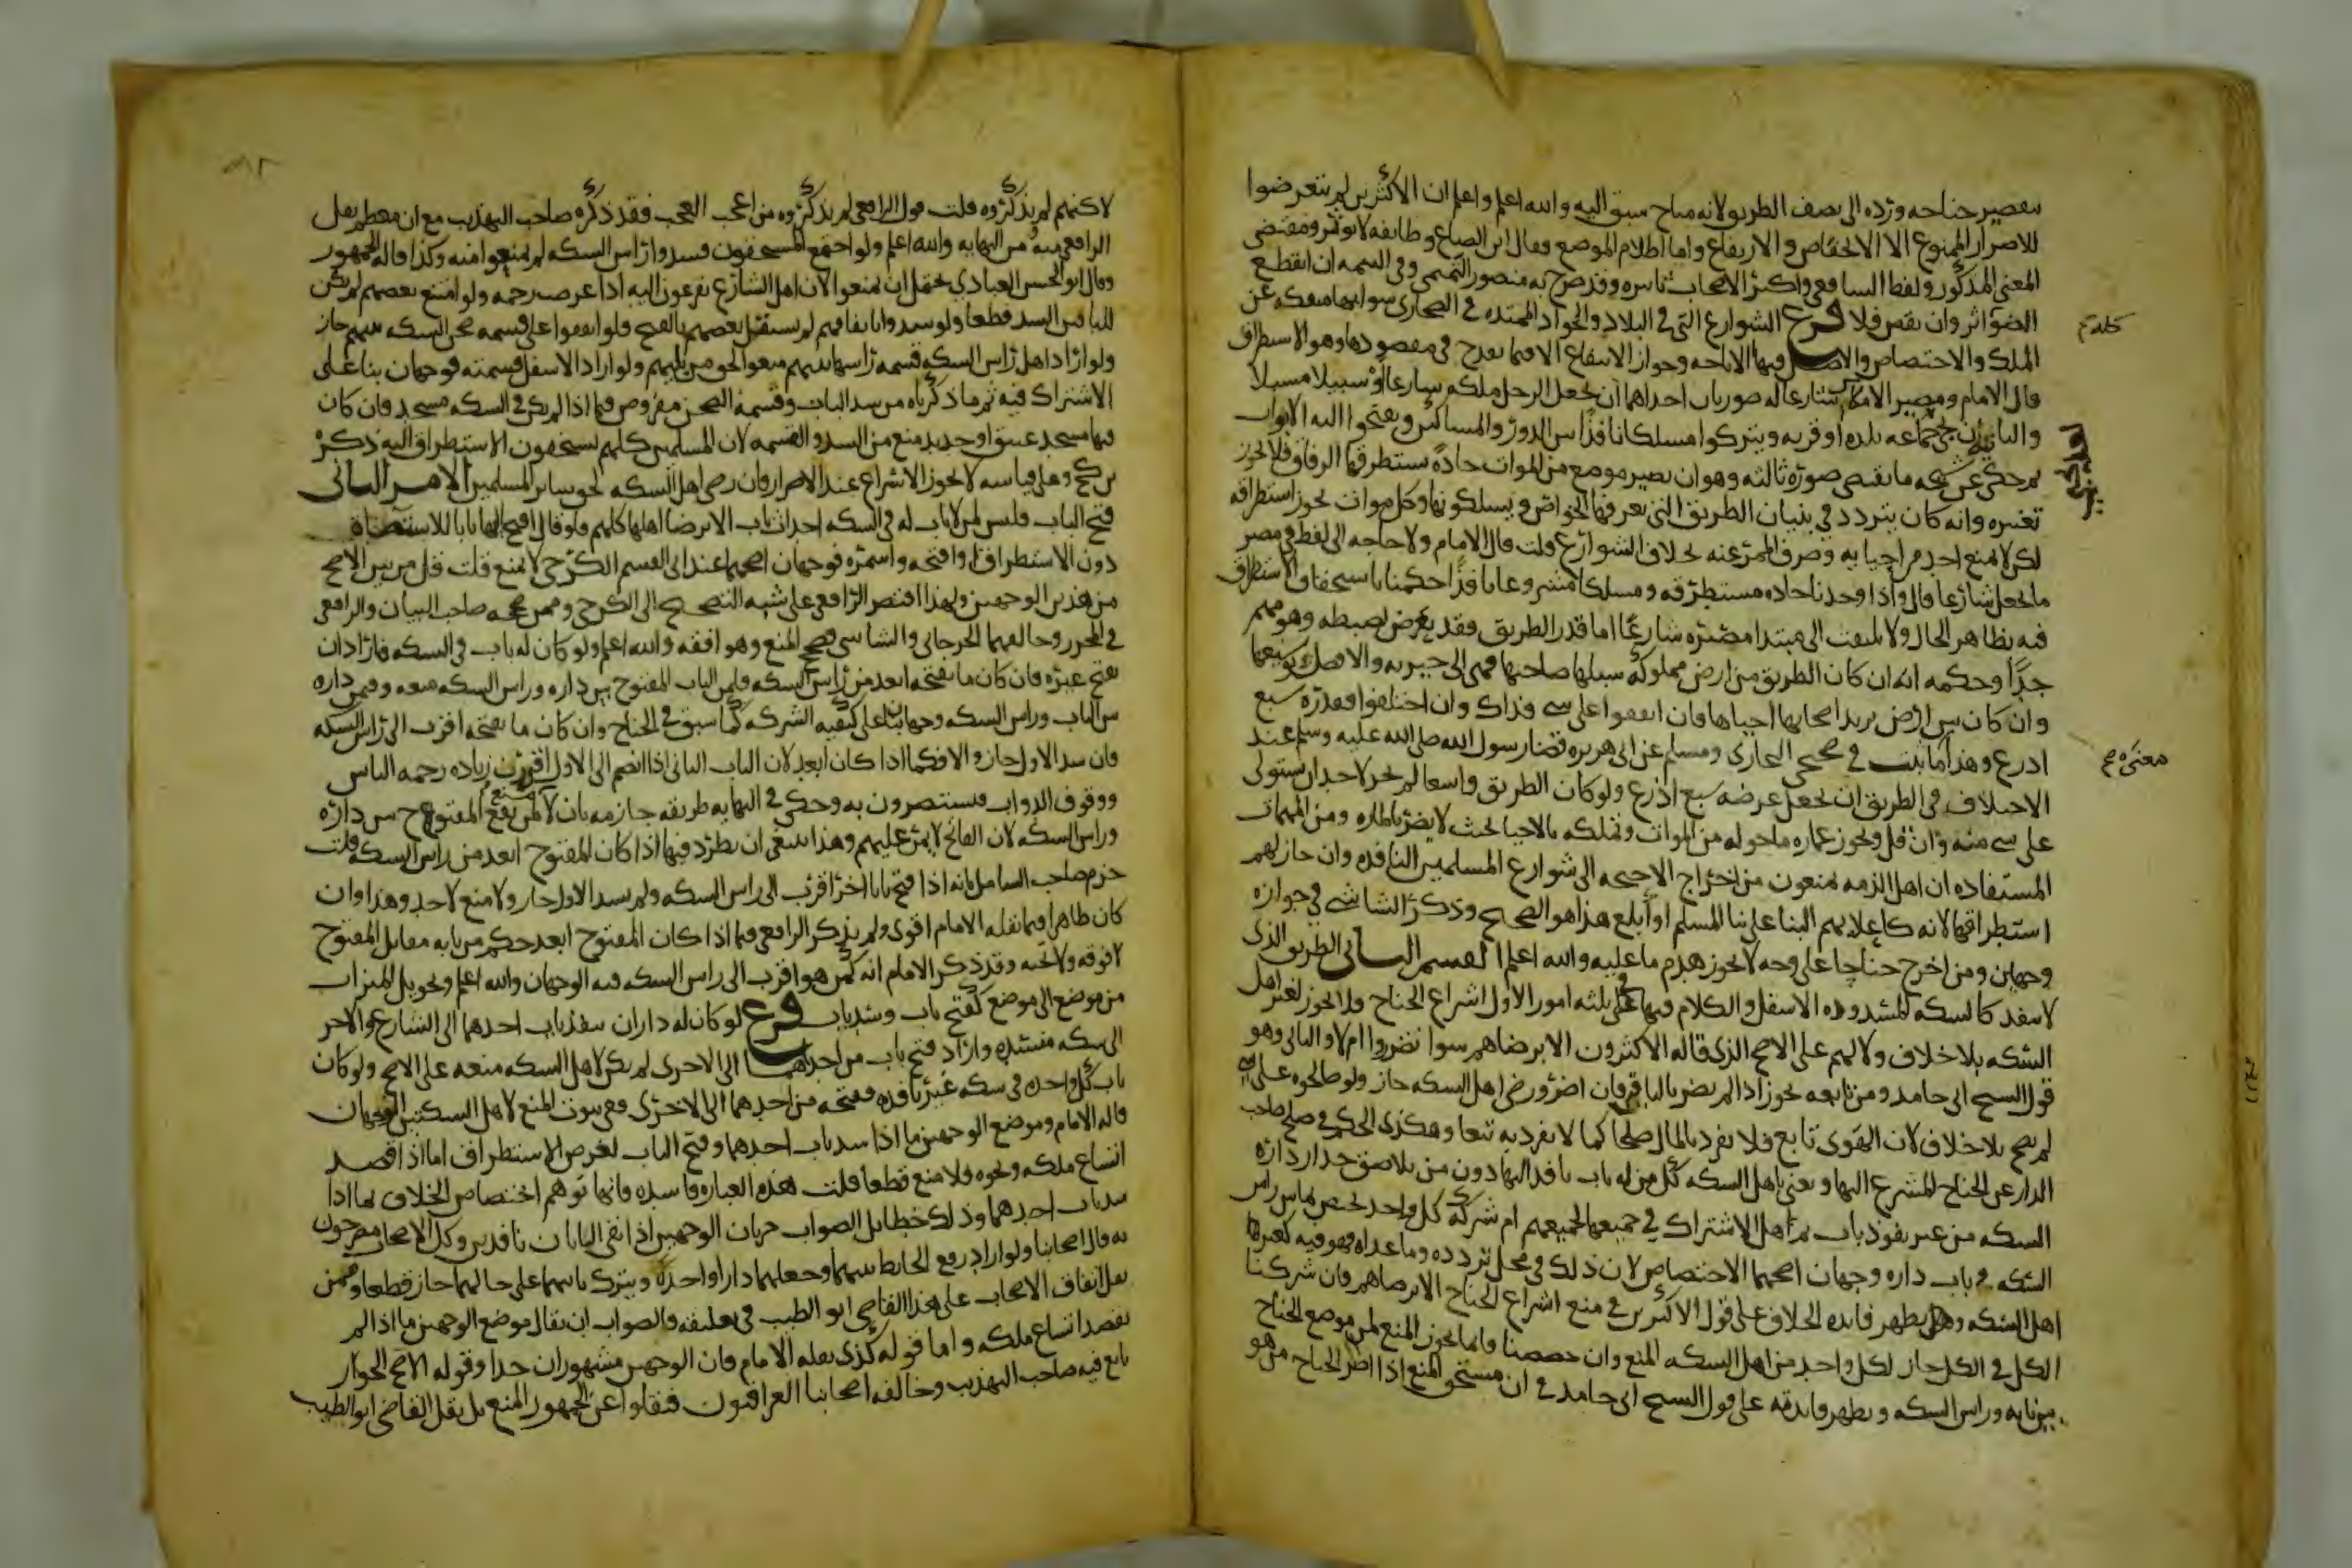 بتقصير جناحه ورده الى نصف الطريق لانه مباح سبق اليه والله اعلم واعلم ان الاكثرين لم يتعرضوا
للاضرار الممنوع الا الانخفاض والارتفاع واما اظلام الموضع فقال ابن الصباغ وطائفة لا يوثر ومقتضى
المعنى المذكور ولفظ الشافعي واكثر الاصحاب تاثيره وقد صرح به منصور التميمي وفي التتمة ان انقطع
الضوء اثر وان نقص فلا فرع الشوارع التي في البلاد والجواد الممتدة في الصحارى سوا انها منفكه عن
الملك والاختصاص والاصل فيها الاباحه وجواز الانتفاع الا فيما يقدح في مقصودها وهو الاستطراق
قال الامام ومصير الامكان شارعا له صورتان احداهما ان يجعل الرجل ملكه شارعا او سبيلا مسبلا
والثاني ان يحيي جماعه بلده او قريه ويتركوا مسلكا نافذا بين الدور والمساكن ويفتحوا اليه الابواب
ثم حكى عن شيخه ما يقتضي صورة ثالثه وهو ان يصير موضع من الموات جادة يستطرقها الرفاق فلا يجوز
تغييره وانه كان يتردد في بنيان الطريق التي يعرفها الخواص ويسلكونها وكل موات يجوز استطراقه
لكن لا يمنع احد من احيا به وصرف الممر عنه بخلاف الشوارع قلت قال الامام ولا حاجه الى لفظ في مصير
ما يجعل شارعا قال واذا وجدنا جاده مستطرقه ومسلكا مشروعا نافذا حكمنا باستحقاق الاستطراق
فيه بظاهر الحال ولا يلتفت الى مبتدا مصيره شارعا اما قدر الطريق فقد يعرض لضبطه وهو مهم
جدا وحكمه انه ان كان الطريق من ارض مملوكة سبلها صاحبها فهي الى خيرته والافضل توسيعها
وان كان بين ارض يريد اصحابها احياها فان اتفقوا على شي فذاك وان اختلفوا فقدره سبع
اذرع وهذا ثابت في صحيحي البخارى ومسلم عن ابي هريره قضا رسول الله صلى الله عليه وسلم عند
الاختلاف في الطريق ان يجعل عرضه سبع اذرع ولو كان الطريق واسعا لم يجز لاحد ان يستولى
على شي منه وان قل ويجوز عماره ما حوله من الموات وتملكه بالاحيا بحيث لا يضر بالماره ومن المهمات
المستفاده ان اهل الذمه يمنعون من اخراج الاجنحه الى شوارع المسلمين النافذه وان جاز لهم
استطراقها لانه كاعلايهم البنا على بنا المسلم او ابلغ هذا هو الصحيح وذكر الشاشي في جوازه
وجهين ومن اخرج جناحا على وجه لا يجوز هدم ما عليه والله اعلم القسم الثاني الطريق الذى
لا ينفذ كالسكه المنسدوده الاسفل والكلام فيها في ثلثه امور الاول اشراع الجناح ولا يجوز لغير اهل
السكه بلا خلاف ولا لهم على الاصح الذى قاله الاكثرون الا برضاهم سوا تضرروا ام لا والثاني وهو
قول الشيخ ابي حامد ومن تابعه يجوز اذا لم يضر بالباقين فان اضر ورضى اهل السكه جاز ولو صالحوه على شي
لم يصح بلا خلاف لان الهوى تابع فلا يفرد بالمال صلحا كما لا يفرد به بيعا وهكذى الحكم في صلح صاحب
الدار عن الجناح المشرع اليها ويعني باهل السكه كل من له باب نافذ اليها دون من يلاصق جدار داره
السكه من غير نفوذ باب ثم اهل الاشتراك في جميعها لجميعهم ام شركة كل واحد تختص بما بين راس
السكه وباب داره وجهان اصحهما الاختصاص لان ذلك في محل تردده وما عداه فهو فيه كغيرها
اهل السكه وهل يظهر فايده الخلاف على قول الاكثرين في منع اشراع الجناح الا برضاهم فان شركنا
الكل في الكل جاز لكل واحد من اهل السكه المنع وان خصصنا فانما يجوز المنع لمن موضع الجناح
بين بابه وراس السكه ويظهر فايدته على قول الشيخ ابي حامد في ان مستحق المنع اذا اضر الجناح من هو
لاكنهم لم يذكروه قلت قول الرافعي لم يذكروه من اعجب العجب فقد ذكره صاحب التهذيب مع ان معظم نقل
الرافعي منه من النهايه والله اعلم ولو اجتمع المستحقون فسدوا راس السكه لم يمنعوا منه وكذا قاله الجمهور
وقال ابو الحسن العبادي يحتمل ان يمنعوا لان اهل الشارع يفزعون اليه اذا عرضت زحمه ولو امتنع بعضهم لم يكن
للباقين السد قطعا ولو سدوا باتفاقهم لم يستقل بعضهم بالفتح فلو اتفقوا على قسمه صحن السكه بينهم جاز
ولو اراد اهل راس السكه قسمه راسها بينهم منعوا لحق من يليهم ولو اراد الاسفل قسمته فوجهان بنا على
الاشتراك فيه ثم ما ذكرناه من سد الباب وقسمة الصحن مفروض فيما اذا لم يكن في السكه مسجد فان كان
فيها مسجد عتيق او جديد منع من السد والقسمه لان المسلمين كلهم يستحقون الاستطراق اليه ذكره
بن كج وعلى قياسه لا يجوز الاشراع عند الاضرار وان رضى اهل السكه لحق ساير المسلمين الامر الثاني
فتح الباب فليس لمن لا باب له في السكه احداث باب الا برضا اهلها كلهم فلو قال افتح اليها بابا للاستضاة
دون الاستطراق او افتحه واسمره فوجهان اصحهما عند ابي القسم الكرخي لا يمنع قلت قل من بين الاصح
من هذين الوجهين ولهذا اقتصر الرافعي على نسبه التصحيح الى الكرخي وممن صححه صاحب البيان والرافعي
في المحرر وخالفهما الجرجاني والشاشي فصححا المنع وهو افقه والله اعلم ولو كان له باب في السكه فاراد ان
يفتح غيره فان كان ما يفتحه ابعد من راس السكه فلمن الباب المفتوح بين داره وراس السكه منعه وفيمن داره
بين الباب وراس السكه وجهان بنا على كيفيه الشركه كما سبق في الجناح وان كان ما يفتحه اقرب الى راس السكه
فان سد الاول جاز والا فكما اذا كان ابعد لان الباب الثاني اذا انضم الى الاول اورث زياده زحمه الناس
ووقوف الدواب فيستضرون به وحكى في النهايه طريقه جازمه بان لا منع لمن يقع المفتوح بين داره
وراس السكه لان الفاتح لا يمر عليهم وهذا ينبغي ان يطرد فيها اذا كان المفتوح ابعد من راس السكه قلت
جزم صاحب الشامل بانه اذا فتح بابا اخر اقرب الى راس السكه ولم يسد الاول جاز ولا منع لاحد وهذا وان
كان ظاهرا فيما نقله الامام اقوى ولم يذكر الرافعي فيما اذا كان المفتوح ابعد حكم من بابه مقابل المفتوح
لا فوقه ولا تحته وقد ذكر الامام انه كمن هو اقرب الى راس السكه ففيه الوجهان والله اعلم وتحويل الميزاب
من موضع الى موضع كفتح باب وسد باب فرع لو كان له داران ينفذ باب احدهما الى الشارع والاخر
الى سكه منسده واراد فتح باب من احدهما الى الاخرى لم يكن لاهل السكه منعه على الاصح ولو كان
باب كل واحده في سكه غير نافذه ففتحه من احدهما الى الاخرى ففي ثبوت المنع لاهل السكتين الوجهان
قاله الامام وموضع الوجهين ما اذا سد باب احدهما وفتح الباب لغرض الاستطراق اما اذا قصد
اتساع ملكه ونحوه فلا منع قطعا قلت هذه العباره فاسده فانها توهم اختصاص الخلاف بما اذا
سد باب احدهما وذلك خطا بل الصواب جريان الوجهين اذا بقي البابان نافذين وكل الاصحاب مصرحون
به قال اصحابنا ولو اراد رفع الحايط بينهما وجعلهما دارا واحدة ويترك بابيهما على حاليهما جاز قطعا وممن
نقل اتفاق الاصحاب على هذا القاضي ابو الطيب في تعليقه والصواب ان يقال موضع الوجهين ما اذا لم
يقصد اتساع ملكه واما قوله كذى نقله الامام فان الوجهين مشهوران جدا وقوله الاصح الجواز
تابع فيه صاحب التهذيب وخالفه اصحابنا العراقيون فنقلوا عن الجمهور المنع بل نقل القاضي ابو الطيب